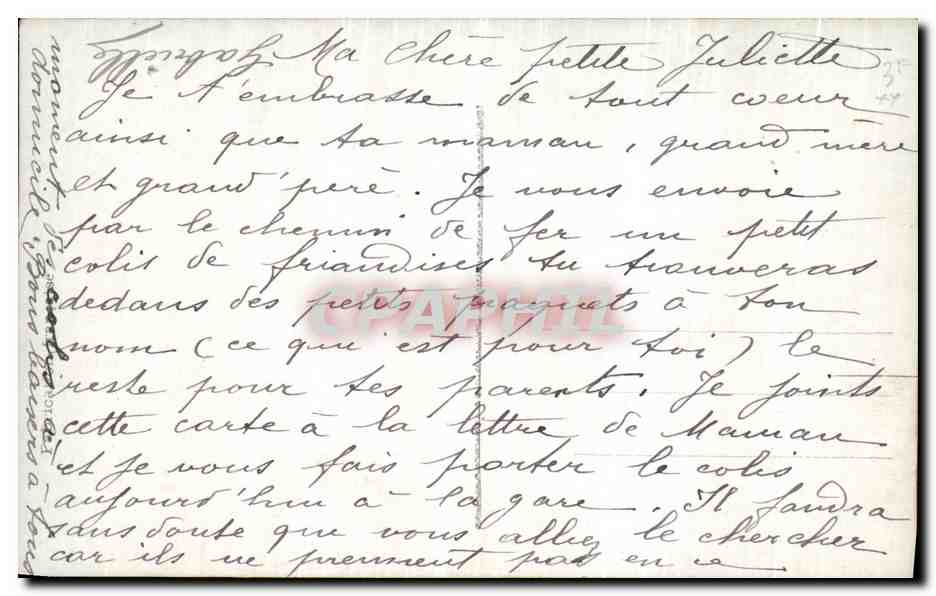 Ma chère petite Juliette
Je t'embrasse de tout coeur
ainsi que ta maman, grand'mère
et grand'père. Je vous envoie
par le chemin de fer un petit
colis de friandises tu trouveras
dedans des petits paquets à ton
nom (ce qui est pour toi) le
reste pour tes parents. Je joints
cette carte à la lettre de Maman
et je vous fais porter le colis
aujourd'hui à la gare. Il faudra
sans doute que vous alliez le chercher
car ils ne prennent pas en ce
moment des colis à
domicile. Bons baisers à tous
Gabrielle
CPAPHIL